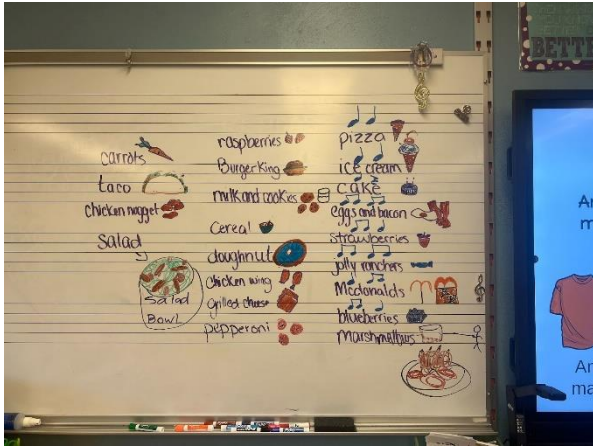 carrots
taco
chicken nugget
Salad
Salad
Bowl
raspberries
Burger King
milk and cookies
Cereal
doughnut
chicken wing
grilled cheese
pepperoni
pizza
ice cream
cake
eggs and bacon
strawberries
jolly ranchers
Mcdonalds
blueberries
BETTE
An
ma